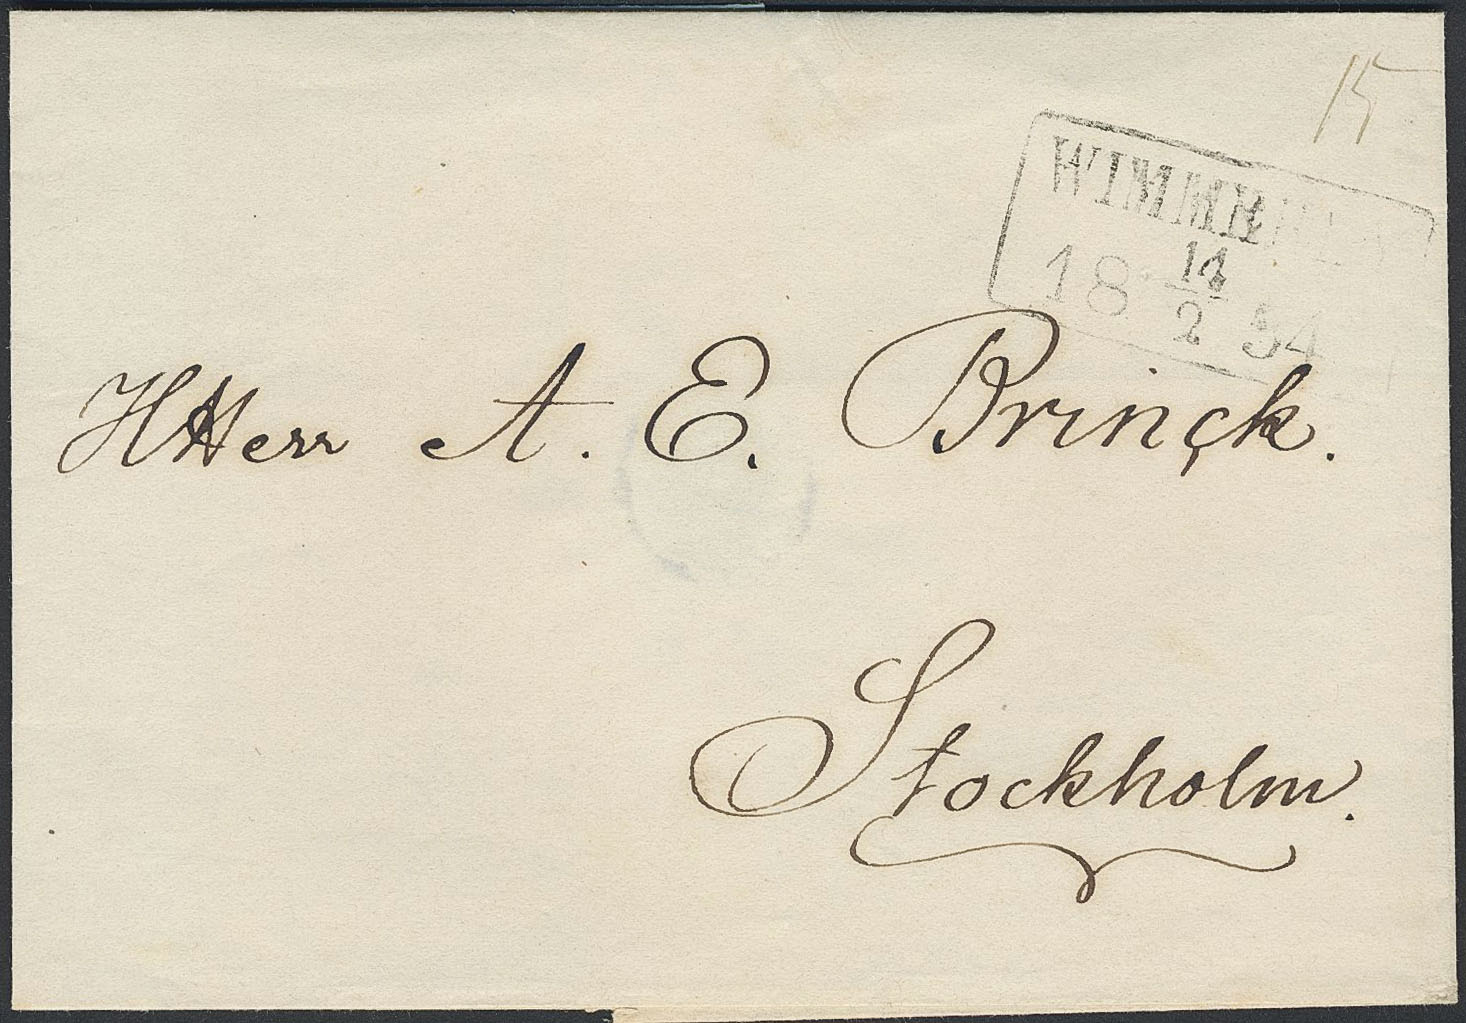 15
18 14/2 54
HHerr A. E. Brinck.
Stockholm.